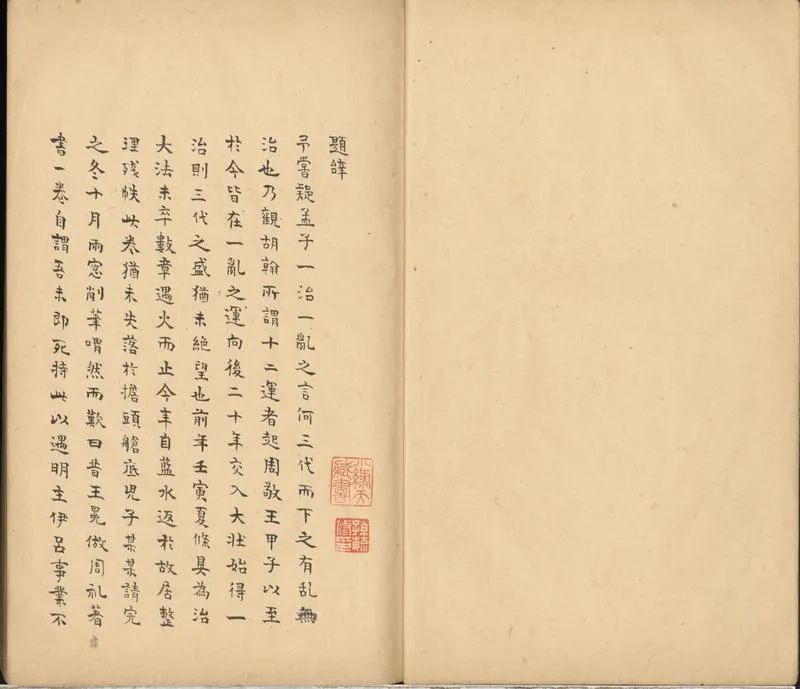 題辭
予嘗疑孟子一治一亂之言何三代而下之有乱無
治也乃觀胡翰所謂十二運者起周敬王甲子以至
於今皆在一亂之運向後二十年交入大壯始得一
治則三代之盛猶未絕望也前年壬寅夏條具為治
大法未卒數章遇火而止今年自藍水返於故居整
理残帙此卷猶未失落於擔頭艙底児子某某請完
之冬十月雨窓削筆喟然而歎曰昔王冕倣周礼著
書一卷自謂吾未即死持此以遇明主伊呂事業不
小綠天
藏書
孫毓
修印